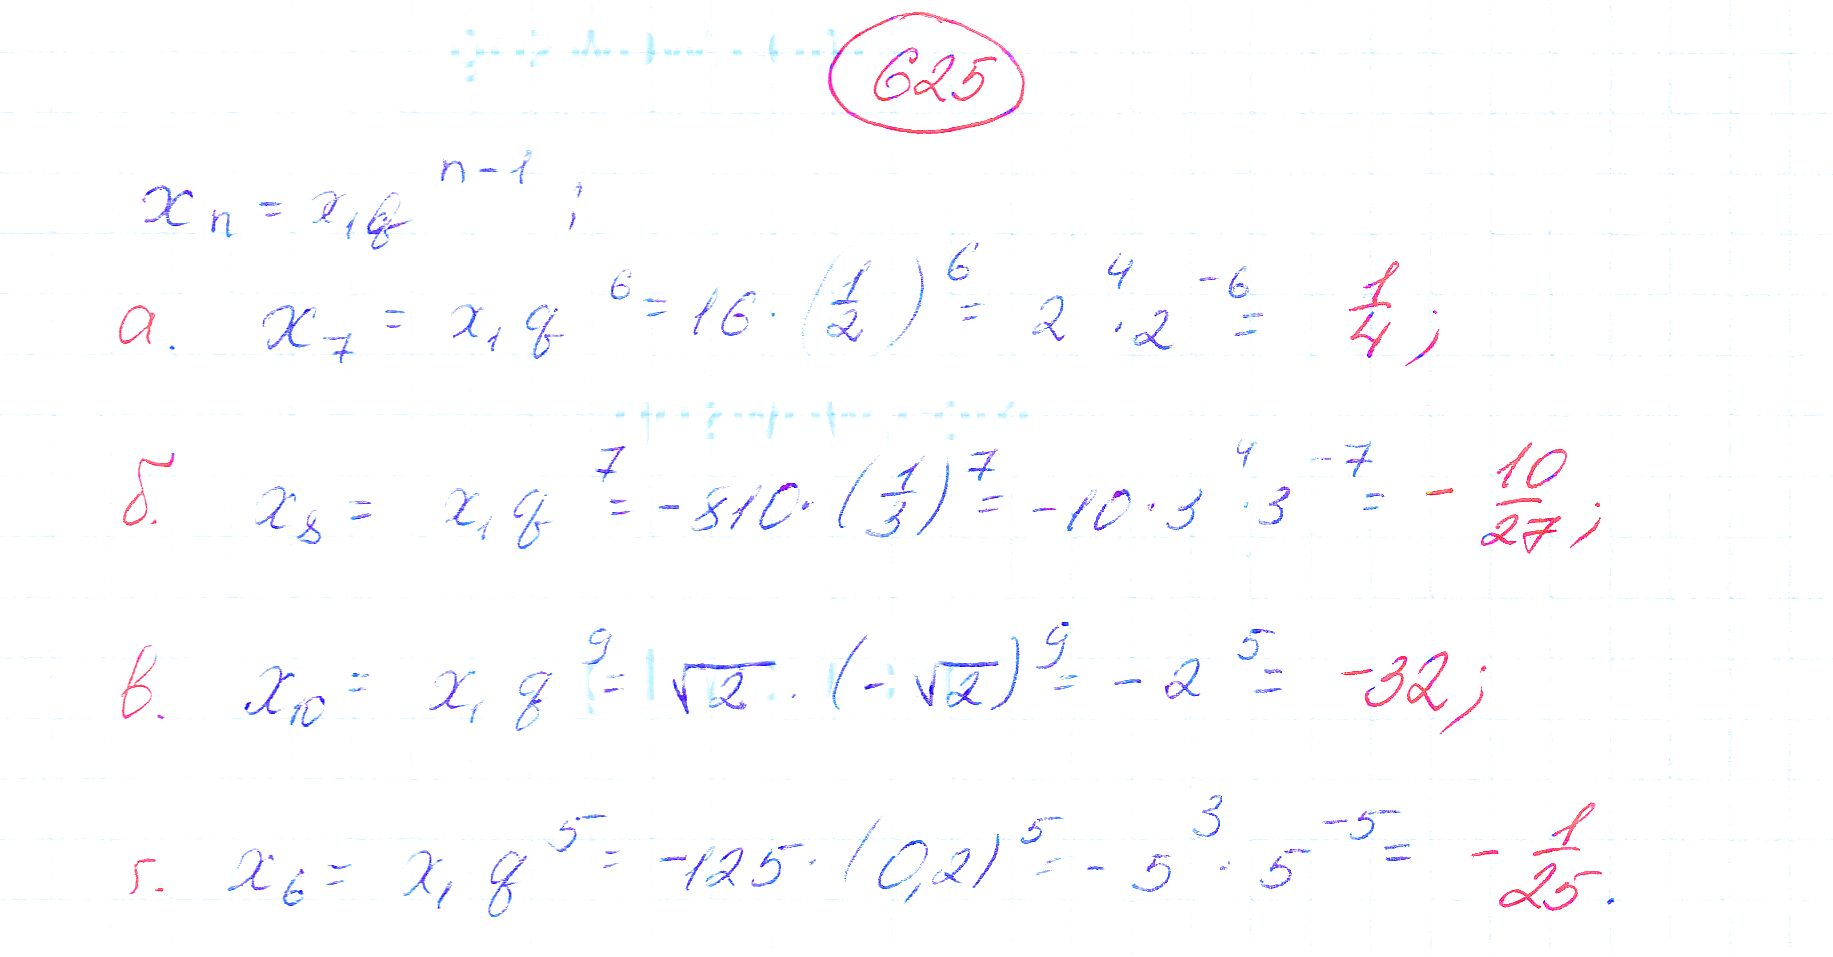 625
xₙ = x₁q^(n-1) ;
а. x₇ = x₁q⁶ = 16 · (1/2)⁶ = 2⁴ · 2⁻⁶ = 1/4 ;
б. x₈ = x₁q⁷ = -810 · (1/3)⁷ = -10 · 3⁴ · 3⁻⁷ = - 10/27 ;
в. x₁₀ = x₁q⁹ = √2 · (-√2)⁹ = -2⁵ = -32 ;
г. x₆ = x₁q⁵ = -125 · (0,2)⁵ = -5³ · 5⁻⁵ = - 1/25 .